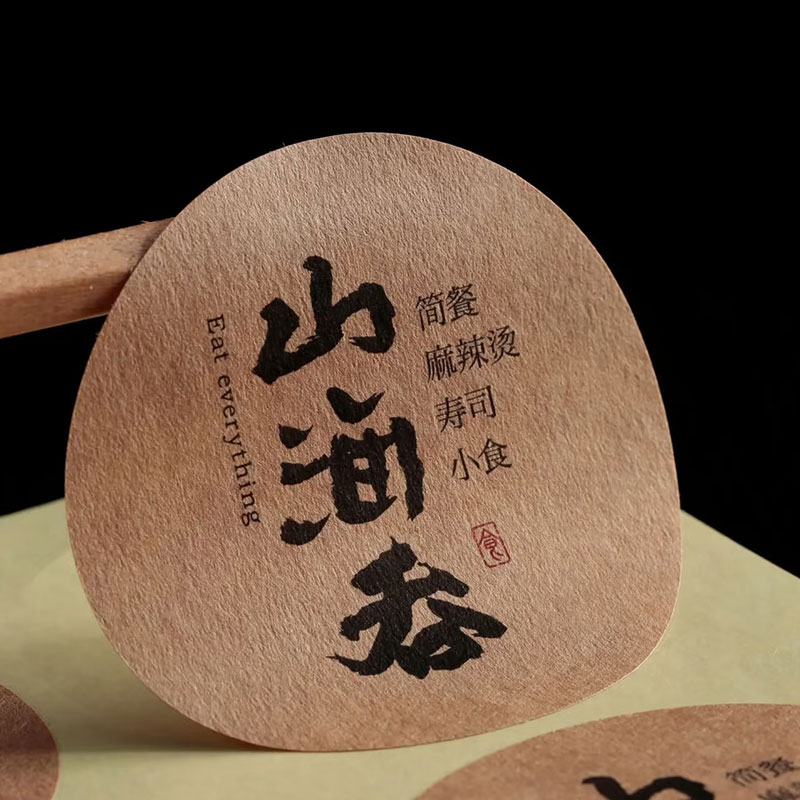 山海吞
Eat everything
简餐
麻辣烫
寿司
小食
食
简餐